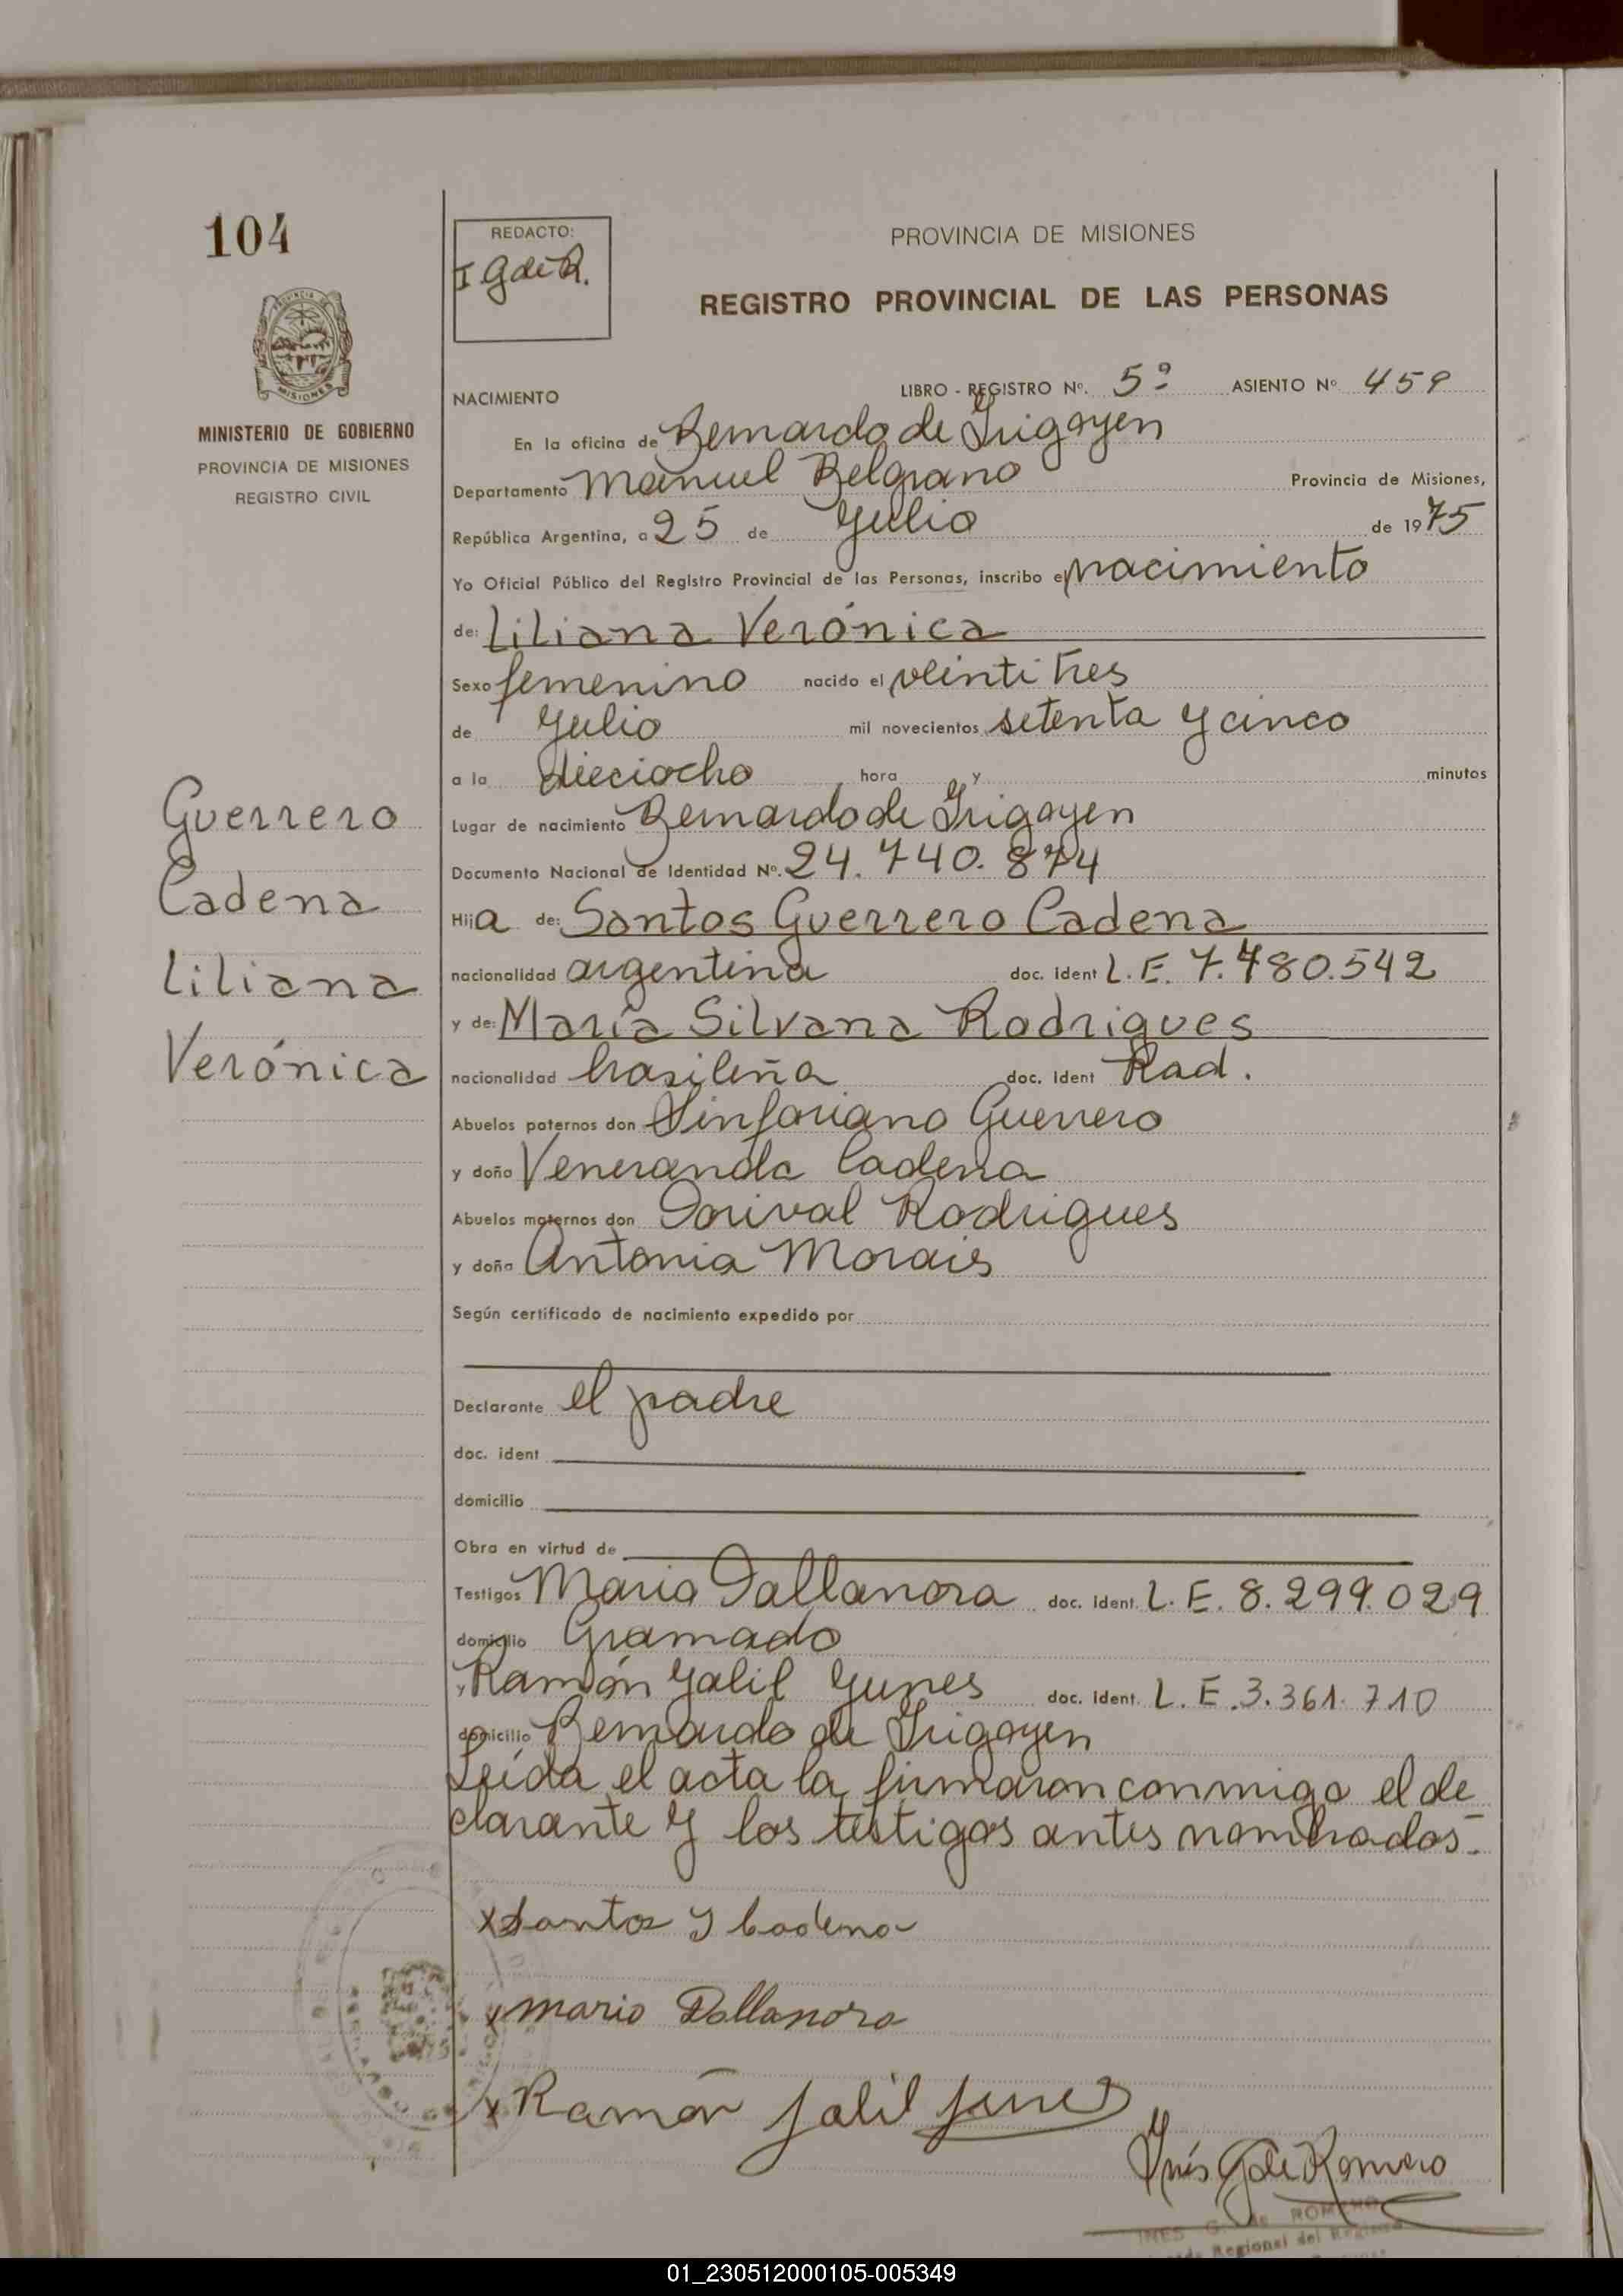 104
REDACTO:
I G de R.
PROVINCIA DE MISIONES
REGISTRO PROVINCIAL DE LAS PERSONAS
PROVINCIA DE
MISIONES
MINISTERIO DE GOBIERNO
PROVINCIA DE MISIONES
REGISTRO CIVIL
NACIMIENTO
LIBRO - REGISTRO Nº. 5º ASIENTO Nº 459
En la oficina de Bernardo de Irigoyen
Departamento Manuel Belgrano Provincia de Misiones,
República Argentina, a 25 de Julio de 1975
Yo Oficial Público del Registro Provincial de las Personas, inscribo el nacimiento
de: Liliana Verónica
Sexo femenino nacido el veintitres
de Julio mil novecientos setenta y cinco
a la dieciocho hora y minutos
Lugar de nacimiento Bernardo de Irigoyen
Documento Nacional de Identidad Nº. 24.740.874
Hija de: Santos Guerrero Cadena
nacionalidad argentina doc. ident L.E. 7.480.542
y de: María Silvana Rodrigues
nacionalidad brasileña doc. ident Rad.
Abuelos paternos don Sinforiano Guerrero
y doña Veneranda Cadena
Abuelos maternos don Dorival Rodrigues
y doña Antonia Morais
Según certificado de nacimiento expedido por
Declarante el padre
doc. ident
domicilio
Obra en virtud de
Testigos Mario Dallanora doc. ident. L.E. 8.299.029
domicilio Gramado
y Ramón Yalil Yunes doc. ident. L.E. 3.361.710
domicilio Bernardo de Irigoyen
Leída el acta la firmaron conmigo el de
clarante y los testigos antes nombrados.-
Guerrero
Cadena
Liliana
Verónica
x Santos G Cadena
x Mario Dallanora
x Ramón Jalil Junes
Inés G de Romero
INES G. de ROMERO
Regional del Registro
01_230512000105-005349